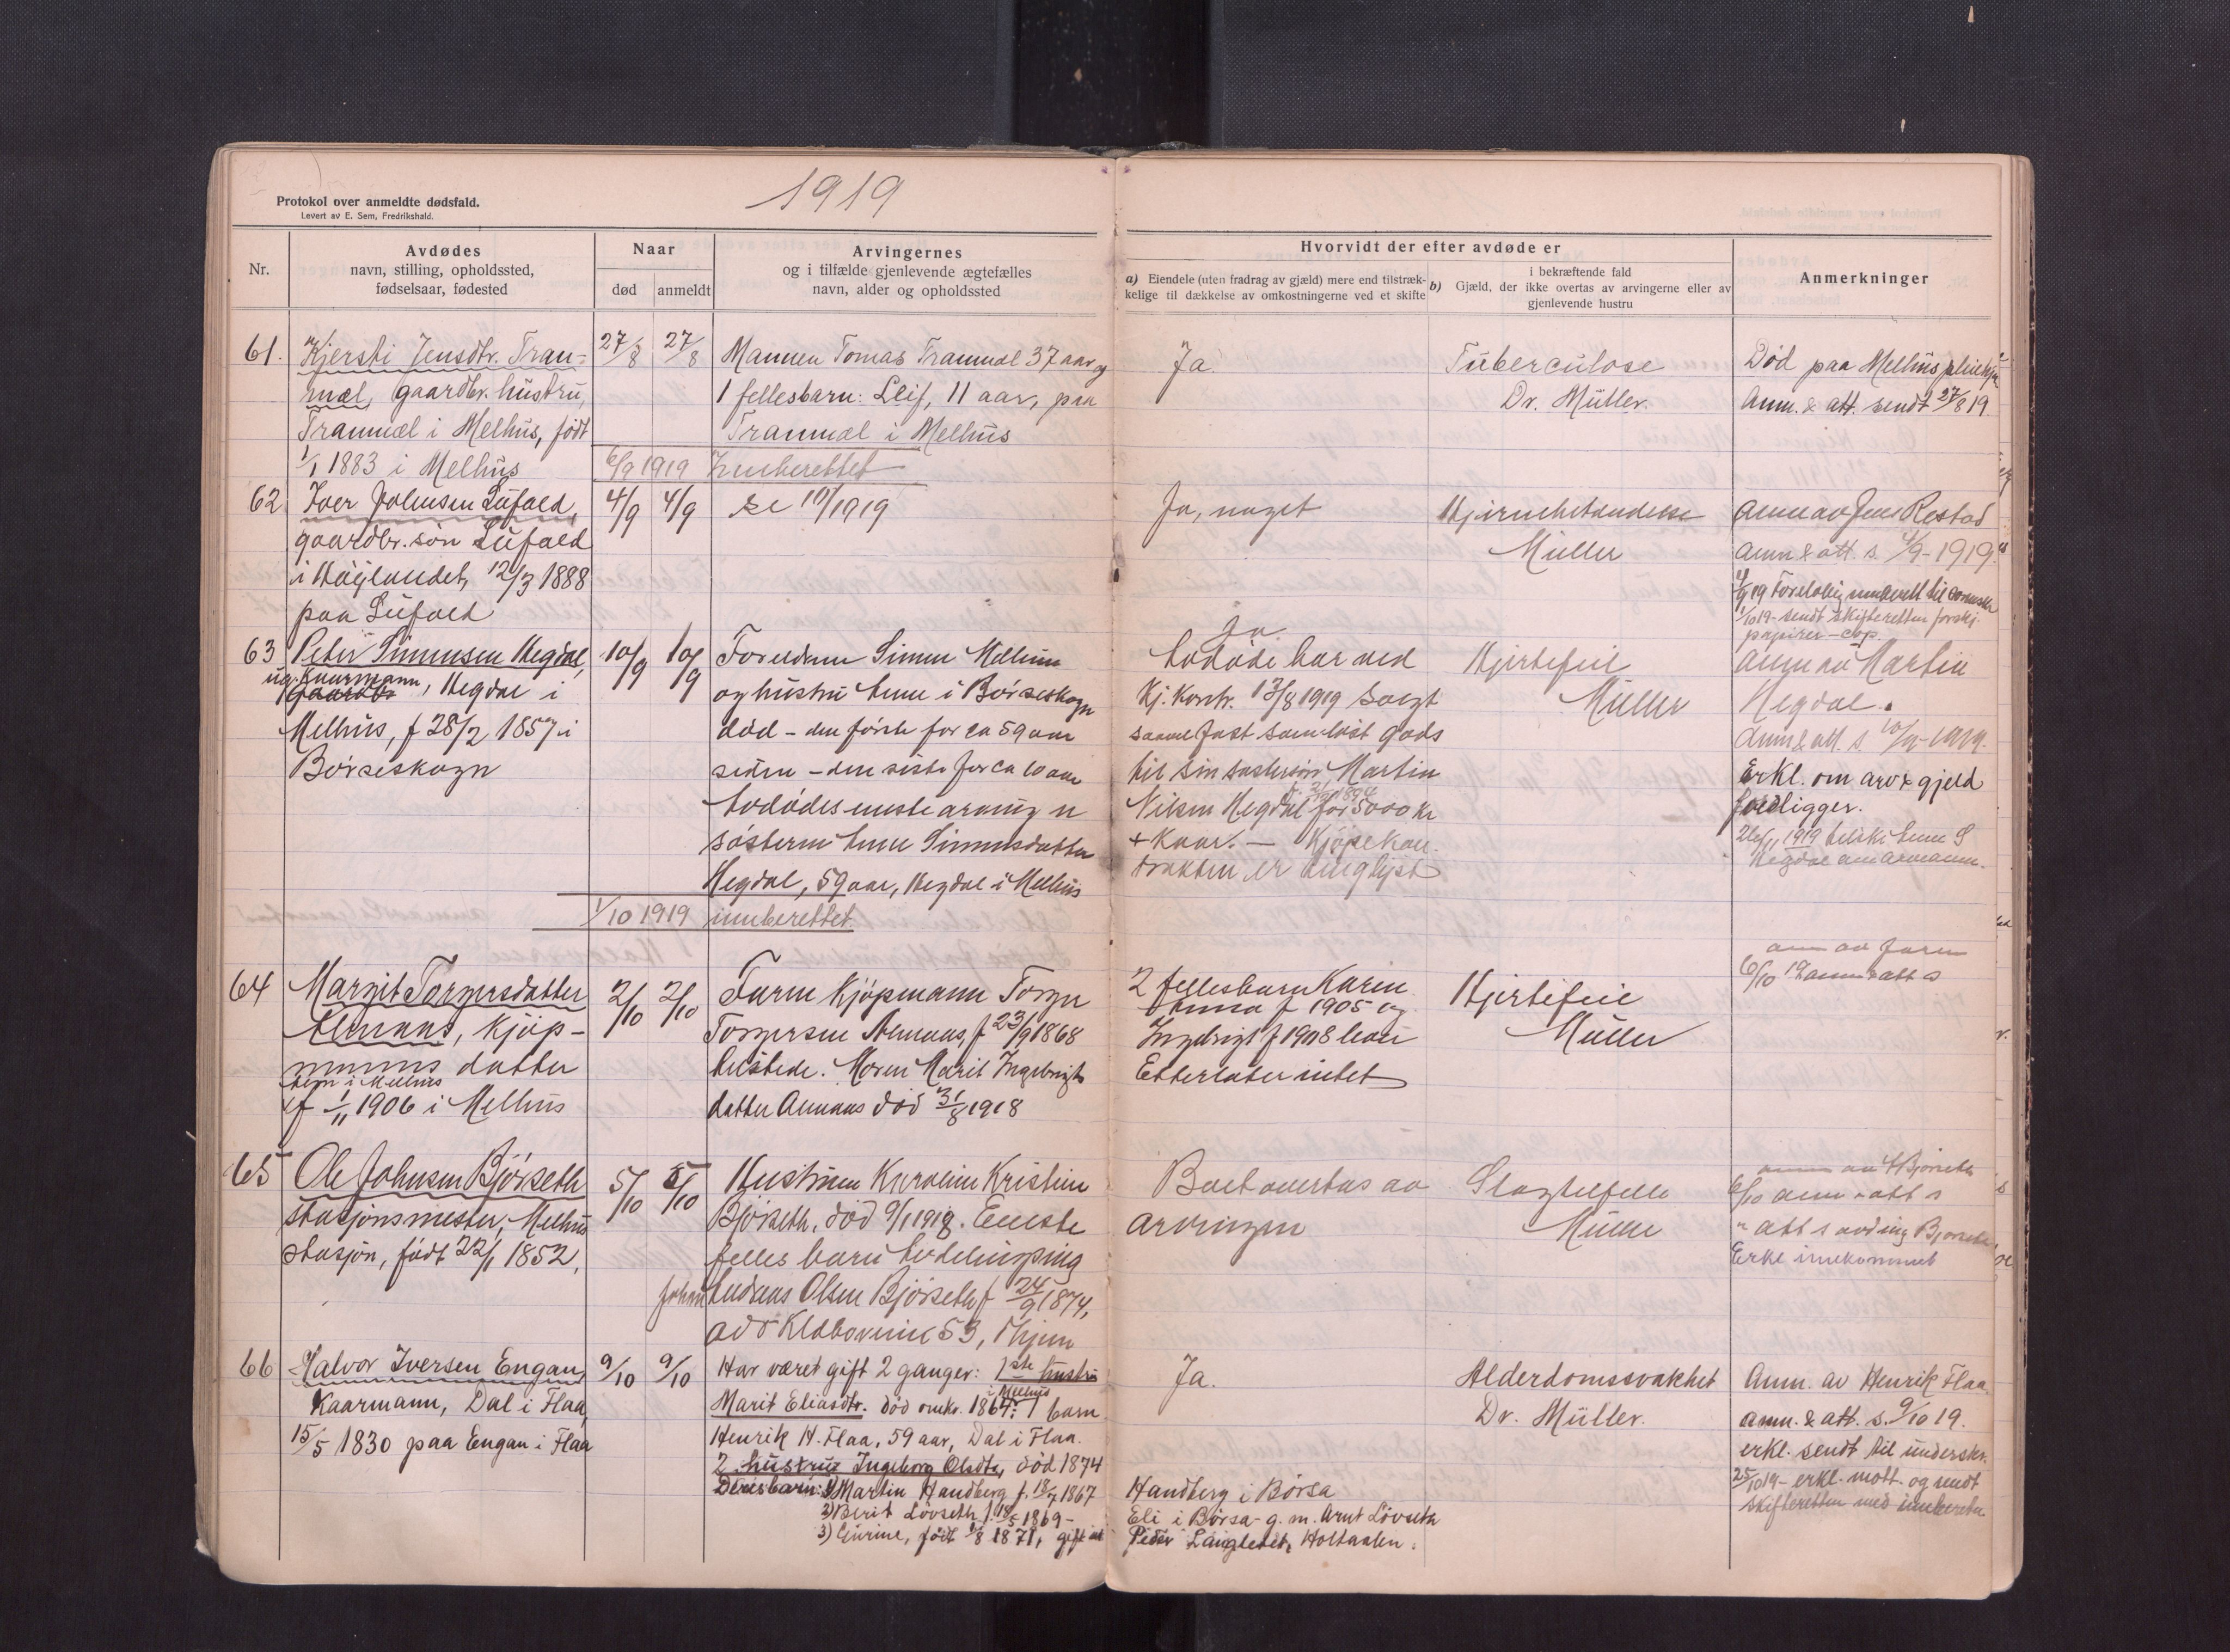 1919
Protokol over anmeldte dødsfald.
Levert av E. Sem, Fredrikshald.
Nr.
Avdødes
navn, stilling, opholdssted,
fødselsaar, fødested
Naar
død
anmeldt
Arvingernes
og i tilfælde gjenlevende ægtefælles
navn, alder og opholdssted
Hvorvidt der efter avdøde er
a) Eiendele (uten fradrag av gjæld) mere end tilstræk-
kelige til dækkelse av omkostningerne ved et skifte
i bekræftende fald
b) Gjæld, der ikke overtas av arvingerne eller av
gjenlevende hustru
Anmerkninger
61.
Kjersti Jensdtr. Tran-
mæl, gaardbr. hustru,
Tranmæl i Melhus, født
1/1 1883 i Melhus
27/8
27/8
Mannen Tomas Tranmæl 37 aar og
1 fellesbarn: Leif, 11 aar, paa
Tranmæl i Melhus
Ja
Tuberculose
Dr. Müller.
Død paa Melhus pleiehjem
Anm. & att. sendt 27/8 19.
6/9 1919 Innberettet
62
Iver Johnsen Lufald,
gaardbr. søn Lufald
i Høilandet, 12/3 1888
paa Lufald
4/9
4/9
se 1919
Ja, noget
Hjernebetendelse
Müller
anm av Jens Restad
anm & att. s. 4/9-1919.
63
Peter Simonsen Hegdal,
ug. kaarmann, Hegdal i
Melhus, f 28/2 1857 i
Børseskogn
10/9
10/9
Foreldrene Simon
og hustru i Børseskogn
død - den første for ca 59 aar
siden - den siste for ca 10 aar
Avdødes eneste arving er
søsteren Simonsdatter
Hegdal, 59 aar, Hegdal i Melhus
Ja
Avdøde har ved
Kj. Kontr. 13/8 1919 solgt
saavel fast som løst gods
til sin søstersøn Martin
Nilsen Hegdal for 5000 kr
+ Kaar. — Kjøpekon-
trakten er tinglyst
Hjertefeil
Müller
anm av Martin
Hegdal.
anm & att. s. 10/9-1919.
Erkl. om arv & gjeld
foreligger.
1/10 1919 innberettet.
64
Margit Torgersdatter
Almaas, kjøp-
manns datter
hjem i Melhus
f 1/11 1906 i Melhus
2/10
2/10
Faren kjøpmann Torger
Torgersen Almaas, f 23/9 1868
hersteds. Moren Marit Ingebrigts
datter Almaas død 31/8 1918
2 fellesbarn Karen
Anna f 1905 og
Ingebrigt f 1908 lever
Etterlater intet
Hjertefeil
Müller
anm av faren
6/10 19 anm & att s
65
Ole Johnsen Bjørseth
stasjonsmester, Melhus
stasjon, født 22/1 1852,
5/10
5/10
Hustruen Karoline Kristine
Bjørseth, død 9/1 1918. Eneste
felles barn
Johan Andreas Olsen Bjørseth f 24/9 1874,
53, Thjem
Boet overtas av
arvingen
Slagtilfelle
Müller
6/10 anm & att s
Erkl innkommet
66
Halvor Iversen Engan,
Kaarmann, Dal i Flaa,
15/5 1830 paa Engan i Flaa
9/10
9/10
Har været gift 2 ganger: 1ste hustru
Marit Eliasdtr. død omkr. 1864: 1 barn
i Melhus
Henrik H. Flaa, 59 aar, Dal i Flaa.
2. hustru Ingeborg Olsdtr, død 1874
Deres barn: 1) Martin Handberg f. 18/7 1867
2) Berit Løvseth f. 18/5 1869 -
3) Gurine, født 1/8 1871, gift m
Ja.
Handberg i Børsa
Eli i Børsa - g. m. Arnt Løvseth
Peder Langletet, Holtaalen.
Alderdomssvakhet
Dr. Müller.
Anm. av Henrik Flaa
anm. & att. s. 9/10 19.
erkl. sendt til underskr.
25/10 19 - erkl. mott. og sendt
skifteretten med innberetn